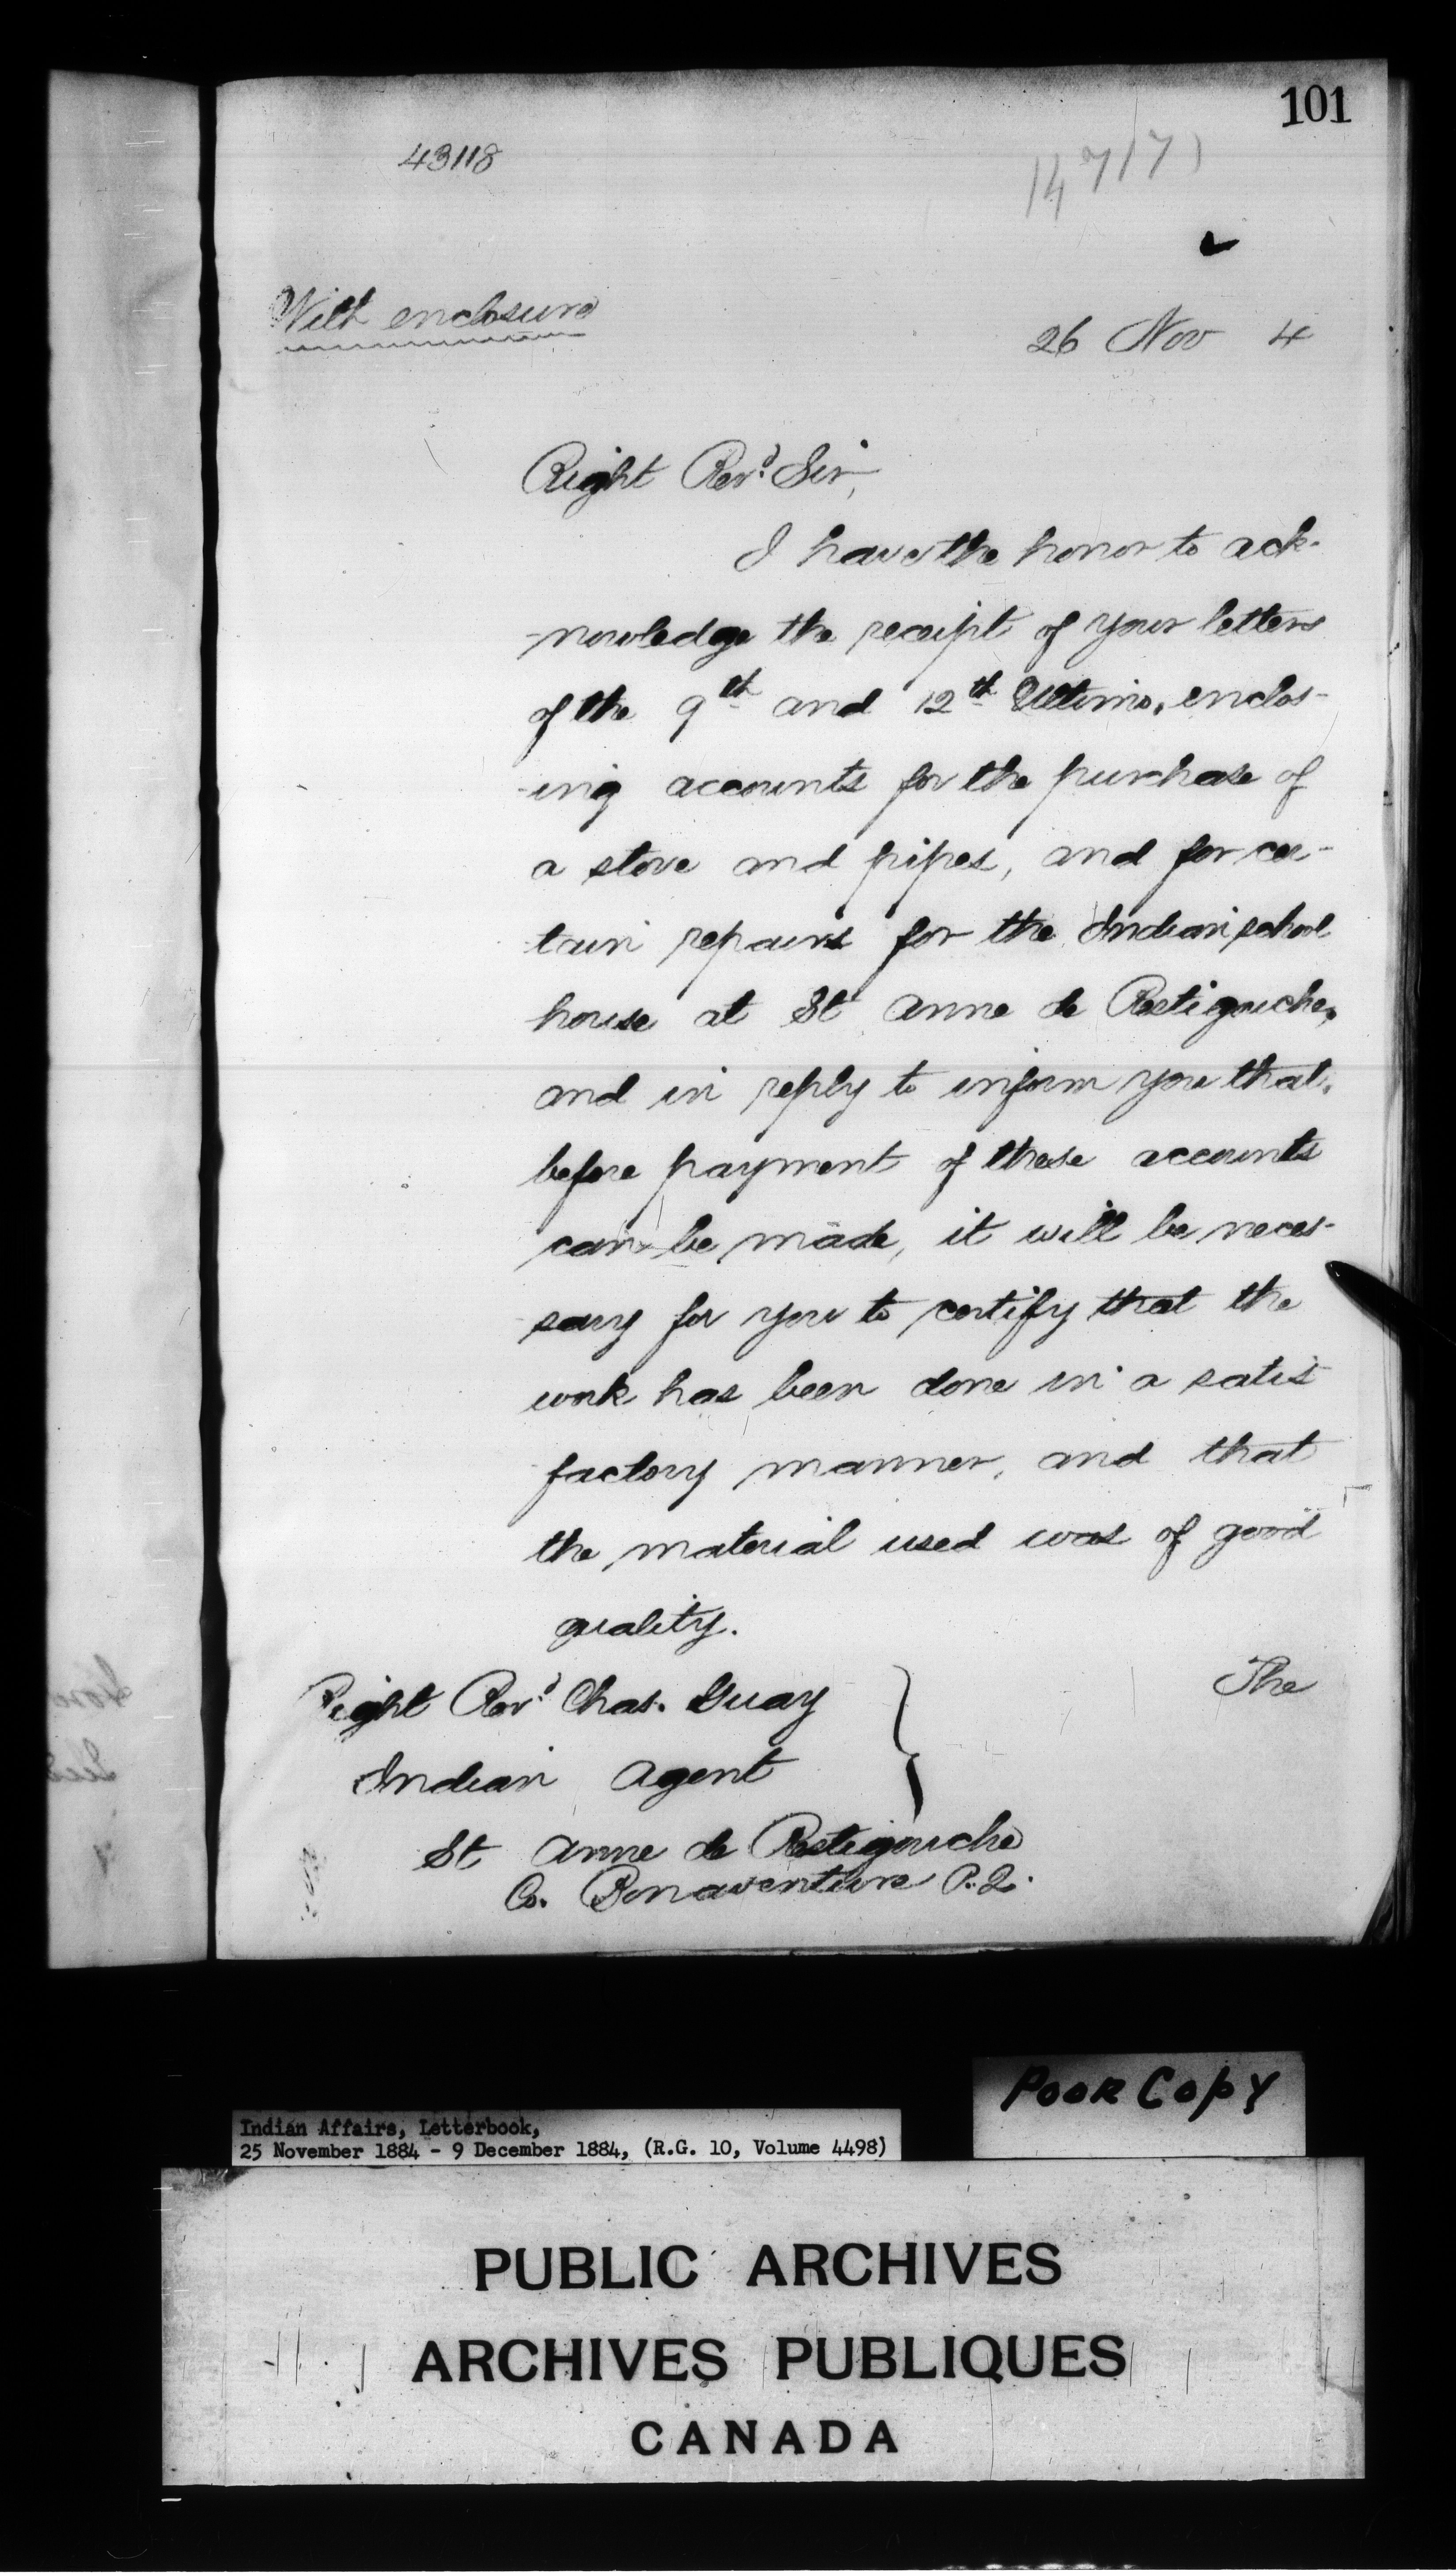 101
43118
14717
With enclosure
26 Nov 4
Right Revd. Sir,
I have the honor to ack-
nowledge the receipt of your letters
of the 9th and 12th Ultimo, enclos-
-ing accounts for the purchase of
a stove and pipes, and for cer-
tain repairs for the Indian school
house at St Anne de Restigouche,
and in reply to inform you that,
before payment of these accounts
can be made, it will be neces-
sary for you to certify that the
work has been done in a satis
factory manner, and that
the material used was of good
quality.
The
Right Revd. Chas. Guay
Indian Agent
St Anne de Restigouche
Co. Bonaventure P.Q.
Poor Copy
Indian Affairs, Letterbook,
25 November 1884 - 9 December 1884, (R.G. 10, Volume 4498)
PUBLIC ARCHIVES
ARCHIVES PUBLIQUES
CANADA